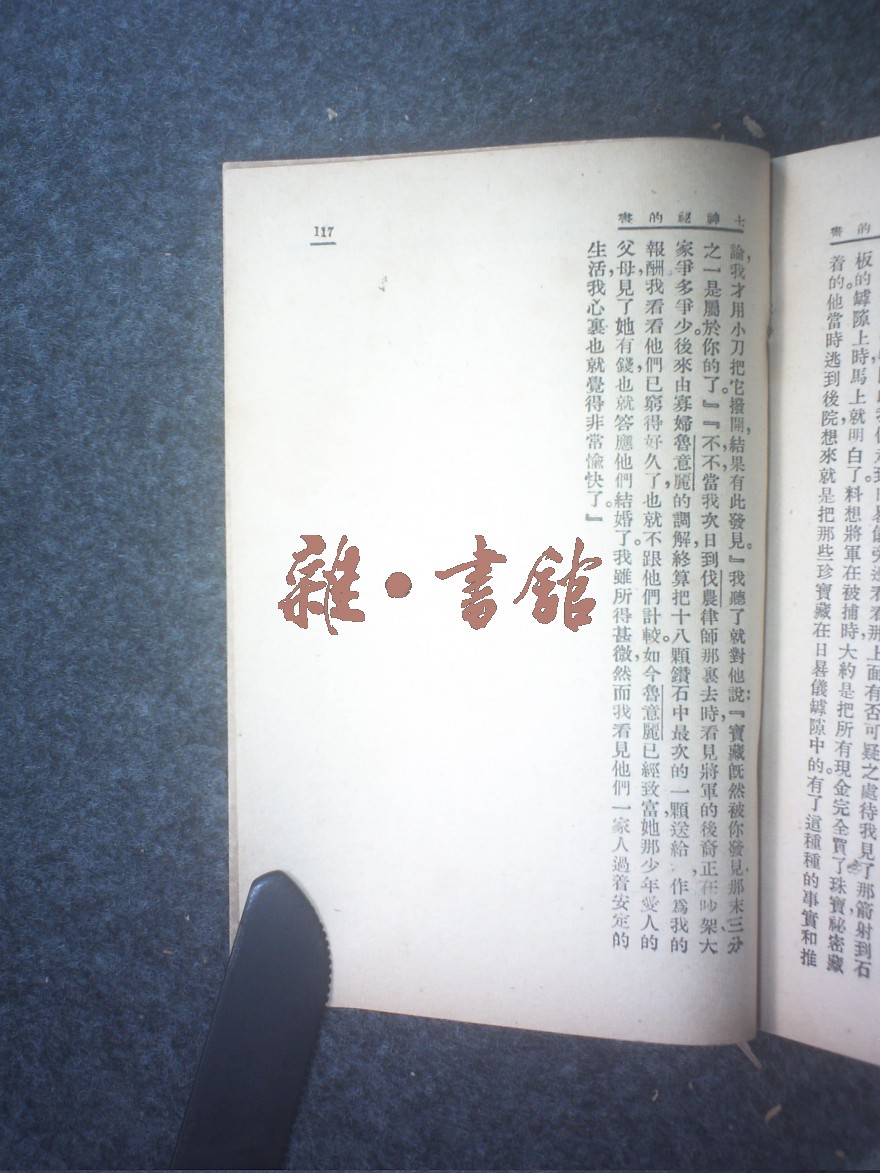 的書
晷儀旁邊看看那上面有否可疑之處待我見了那箭射到石
板的罅隙上時,馬上就明白了。料想將軍在被捕時,大約是把所有現金完全買了珠寶祕密藏
着的。他當時逃到後院,想來就是把那些珍寶藏在日晷儀罅隙中的。有了這種種的事實和推
七 神祕的書
論,我才用小刀把它撥開,結果有此發見。』我聽了就對他說:『寶藏既然被你發見,那末,三分
之一是屬於你的了。』『不,不,當我次日到伐農律師那裏去時,看見將軍的後裔正在吵架,大
家爭多爭少。後來由寡婦魯意麗的調解,終算把十八顆鑽石中最次的一顆送給,作爲我的
報酬,我看看他們已窮得好久了,也就不跟他們計較。如今魯意麗已經致富,她那少年愛人的
父母見了她有錢,也就答應他們結婚了。我雖所得甚微,然而我看見他們一家人過着安定的
生活,我心裏也就覺得非常愉快了。』
117
雜•書館